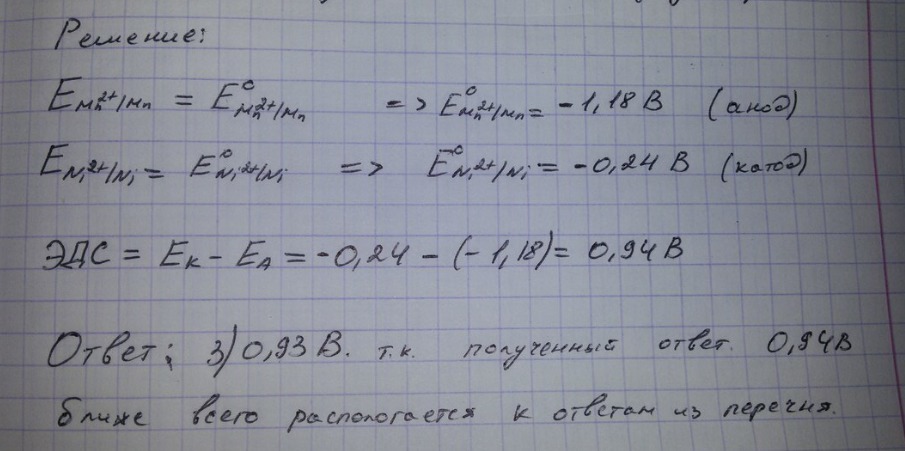 Решение:
E Mn²⁺/Mn = E⁰ Mn²⁺/Mn => E⁰ Mn²⁺/Mn = -1,18 В (анод)
E Ni²⁺/Ni = E⁰ Ni²⁺/Ni => E⁰ Ni²⁺/Ni = -0,24 В (катод)
ЭДС = Eк - EА = -0,24 - (-1,18) = 0,94 В
Ответ: 3) 0,93 В. т.к. полученный ответ. 0,94В
ближе всего распологается к ответам из перечня.